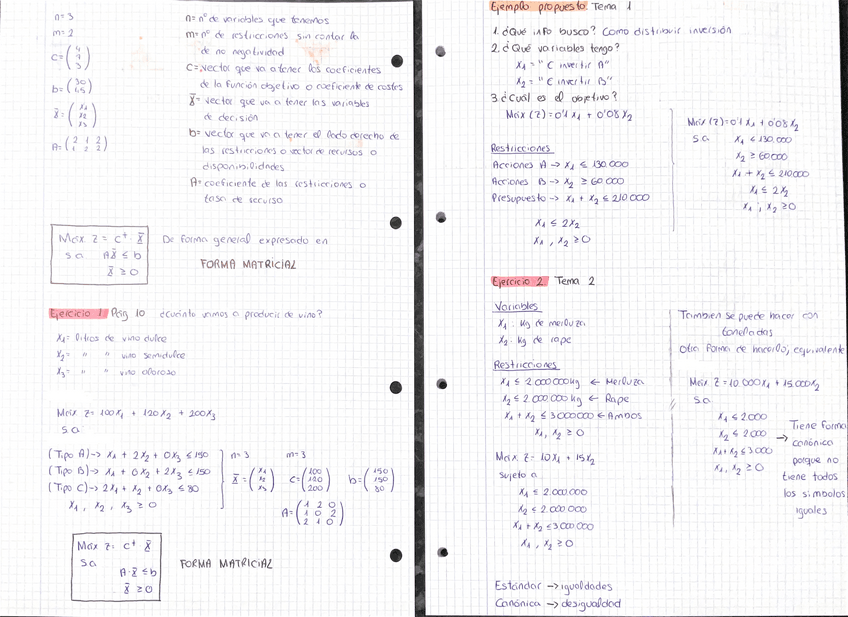 n=3
m=2
c=(4 7 3)
b=(30 65)
x̄=(x1 x2 x3)
A=(2 1 2 / 1 2 2)
n=nº de variables que tenemos
m=nº de restricciones sin contar la
de no negatividad
c=vector que va a tener los coeficientes
de la función objetivo o coeficiente de costes
x̄=vector que va a tener las variables
de decisión
b=vector que va a tener el lado derecho de
las restricciones o vector de recursos o
disponibilidades
A=coeficiente de las restricciones o
tasa de recurso
Máx z = c^t · x̄
s.a Ax̄ ≤ b
x̄ ≥ 0
De forma general expresado en
FORMA MATRICIAL
Ejercicio 1 Pág 10 ¿Cuánto vamos a producir de vino?
x1= litros de vino dulce
x2= " " vino semidulce
x3= " " vino oloroso
Máx z=100x1 + 120x2 + 200x3
s.a
(Tipo A)-> x1 + 2x2 + 0x3 ≤ 150
(Tipo B)-> x1 + 0x2 + 2x3 ≤ 150
(Tipo C)-> 2x1 + x2 + 0x3 ≤ 80
x1, x2, x3 ≥ 0
n=3 m=3
x̄=(x1 x2 x3) c=(100 120 200) b=(150 150 80)
A=(1 2 0 / 1 0 2 / 2 1 0)
Máx z= c^t x̄
s.a
A·x̄ ≤ b
x̄ ≥ 0
FORMA MATRICIAL
Ejemplo propuesto Tema 1
1. ¿Qué info busco? Como distribuir inversión
2. ¿Qué variables tengo?
x1 = "€ invertir A"
x2 = "€ invertir B"
3 ¿Cuál es el objetivo?
Máx (z) = 0'1 x1 + 0'08 x2
Restricciones
Acciones A -> x1 ≤ 130.000
Acciones B -> x2 ≥ 60000
Presupuesto -> x1 + x2 ≤ 210000
x1 ≤ 2x2
x1, x2 ≥ 0
Máx (z)=0'1 x1 + 0'08x2
s.a x1 ≤ 130.000
x2 ≥ 60000
x1 + x2 ≤ 210000
x1 ≤ 2x2
x1, x2 ≥ 0
Ejercicio 2 Tema 2
Variables
x1: kg de merluza
x2: kg de rape
Restricciones
x1 ≤ 2.000000kg ← Merluza
x2 ≤ 2.000000 kg ← Rape
x1 + x2 ≤ 3000000 ← Ambos
x1, x2 ≥ 0
Máx z= 10x1 + 15x2
sujeto a
x1 ≤ 2.000.000
x2 ≤ 2.000.000
x1 + x2 ≤ 3000000
x1, x2 ≥ 0
Estándar -> igualdades
Canónica -> desigualdad
Tambien se puede hacer con
toneladas
otra forma de hacerlo, equivalente
Máx z=10000x1 + 15000x2
s.a
x1 ≤ 2000
x2 ≤ 2000
x1+x2 ≤ 3000
x1, x2 ≥ 0
-> Tiene forma
canónica
porque no
tiene todos
los simbolos
iguales